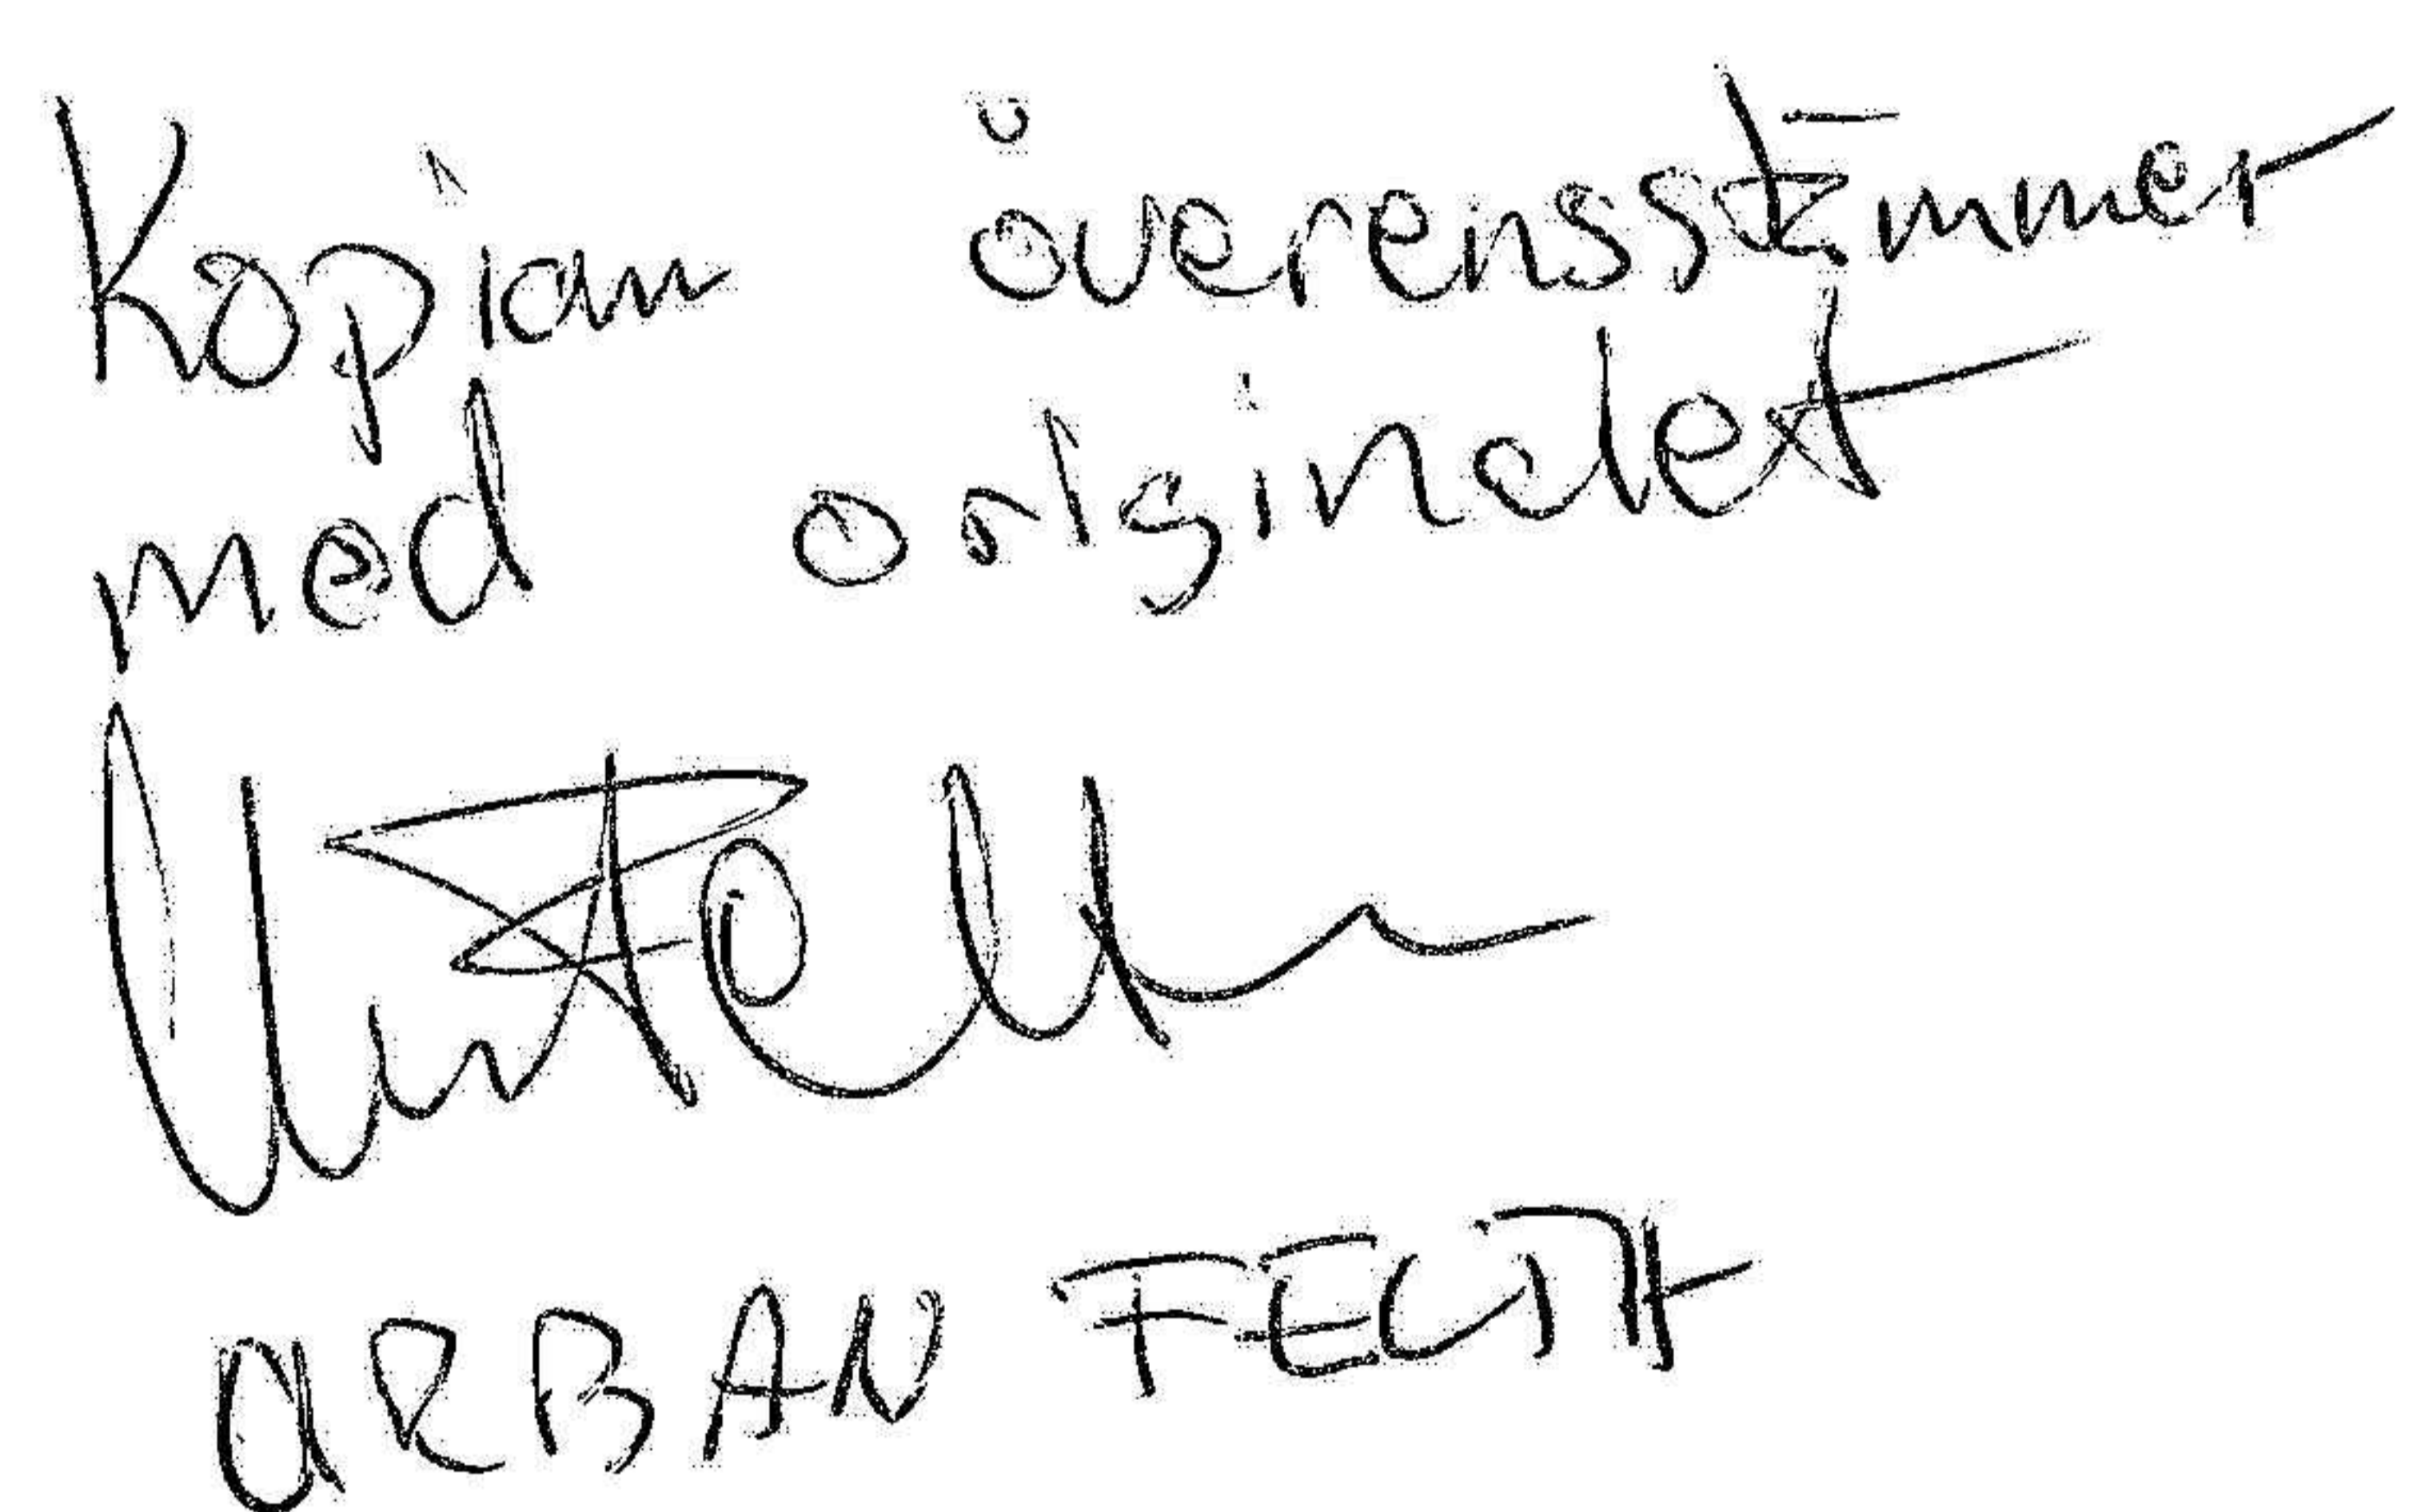 Kopian överensstämmer
med originalet
URBAN FECTH